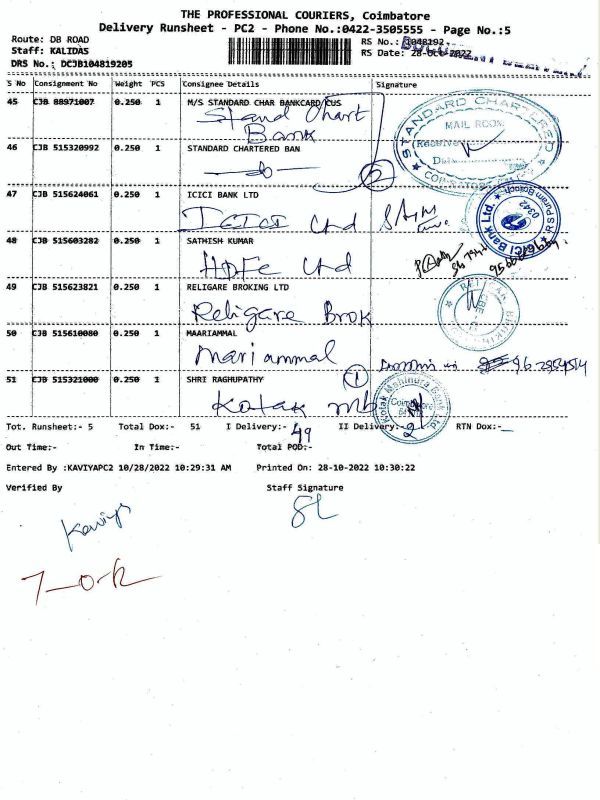 THE PROFESSIONAL COURIERS, Coimbatore
Delivery Runsheet - PC2 - Phone No.:0422-3505555 - Page No.:5
Route: DB ROAD
Staff: KALIDAS
DRS No.: DCJB104819205
RS No.: 1048192
RS Date: 28-Oct-2022
S No Consignment No Weight PCS Consignee Details Signature
45 CJB 88971007 0.250 1 M/S STANDARD CHAR BANKCARD/CUS
Stand Chart
Bank
STANDARD CHARTERED
MAIL ROOM
Received
Date
46 CJB 515320992 0.250 1 STANDARD CHARTERED BAN
2
47 CJB 515624061 0.250 1 ICICI BANK LTD
ICICI Ltd
ICICI Bank Ltd.
RS Puram Branch
0342
48 CJB 515603282 0.250 1 SATHISH KUMAR
HDFC Ltd
49 CJB 515623821 0.250 1 RELIGARE BROKING LTD
Religare Brok
50 CJB 515610080 0.250 1 MAARIAMMAL
Mariammal
51 CJB 515321000 0.250 1 SHRI RAGHUPATHY
1
Kotak mb
Kotak Mahindra Bank Ltd.
Coimbatore
Tot. Runsheet:- 5 Total Dox:- 51 I Delivery:- 49 II Delivery:- 2 RTN Dox:-
Out Time:- In Time:- Total POD:-
Entered By :KAVIYAPC2 10/28/2022 10:29:31 AM Printed On: 28-10-2022 10:30:22
Verified By Staff Signature
Kaviya